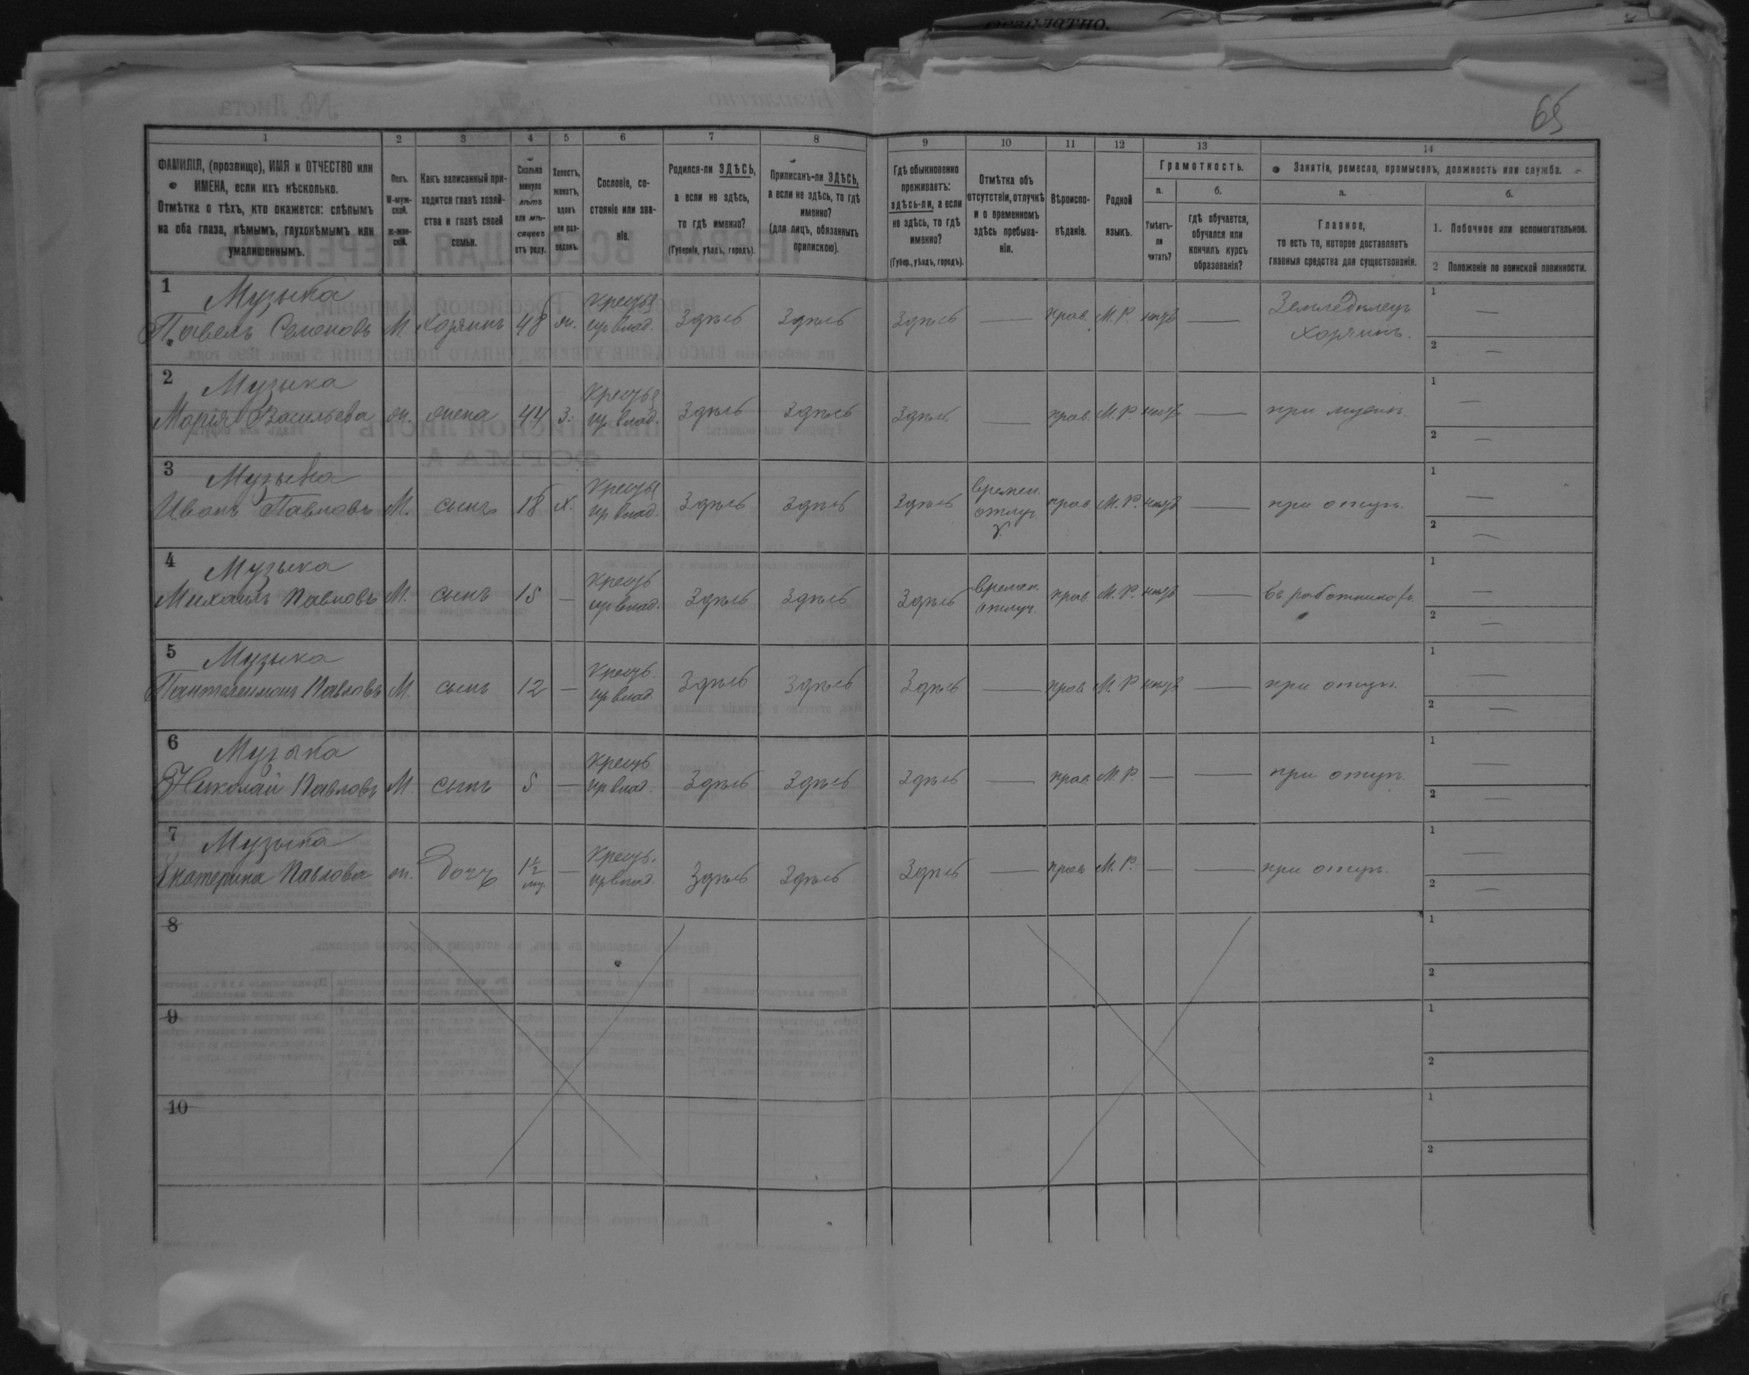 Безплатно.
65
1 2 3 4 5 6 7 8 9 10 11 12 13 14
ФАМИЛІЯ, (прозвище), ИМЯ и ОТЧЕСТВО или
ИМЕНА, если ихъ нѣсколько.
Отмѣтка о тѣхъ, кто окажется: слѣпымъ
на оба глаза, нѣмымъ, глухонѣмымъ или
умалишеннымъ.
Полъ.
М-муж-
ской.
ж-жен-
скій.
Какъ записанный при-
ходится главѣ хозяй-
ства и главѣ своей
семьи.
Сколько
минуло
лѣтъ
или мѣ-
сяцевъ
отъ роду.
Холостъ,
женатъ,
вдовъ
или раз-
веденъ.
Сословіе, со-
стояніе или зва-
ніе.
Родился-ли ЗДѢСЬ,
а если не здѣсь,
то гдѣ именно?
(Губернія, уѣздъ, городъ).
Приписанъ-ли ЗДѢСЬ,
а если не здѣсь, то гдѣ
именно?
(для лицъ, обязанныхъ
припискою).
Гдѣ обыкновенно
проживаетъ:
здѣсь-ли, а если
не здѣсь, то гдѣ
именно?
(Губер., уѣздъ, городъ).
Отмѣтка объ
отсутствіи, отлучкѣ
и о временномъ
здѣсь пребыва-
ніи.
Вѣроиспо-
вѣданіе.
Родной
языкъ.
Грамотность.
а.
Умѣетъ-
ли
читать?
б.
гдѣ обучается,
обучался или
кончилъ курсъ
образованія?
Занятіе, ремесло, промыселъ, должность или служба.
а.
Главное,
то есть то, которое доставляетъ
главныя средства для существованія.
б.
1. Побочное или вспомогательное.
2 Положеніе по воинской повинности.
1 Музыка Крестья Земледѣлецъ 1 —
Павелъ Семеновъ М хозяинъ 48 ж. ир влад. Здѣсь Здѣсь Здѣсь — прав. М.Р. нѣтъ — хозяинъ. 2 —
2 Музыка Крестья 1 —
Марія Васильева ж. жена 44 З. ир влад. Здѣсь Здѣсь Здѣсь — прав. М.Р. нѣтъ — при мужѣ 2 —
3 Музыка Крестья времен. 1 —
Иванъ Павловъ М. сынъ 18 х. ир влад. Здѣсь Здѣсь Здѣсь отлуч. прав. М.Р. нѣтъ — при отцѣ. 2 —
4 Музыка Кресть времен. 1 —
Михаилъ Павловъ М. сынъ 15 — ир влад. Здѣсь Здѣсь Здѣсь отлуч. прав. М.Р. нѣтъ — въ работникахъ 2 —
5 Музыка Кресть. 1 —
Пантелеимонъ Павловъ М. сынъ 12 — ир влад. Здѣсь Здѣсь Здѣсь — прав. М.Р. нѣтъ — при отцѣ. 2 —
6 Музыка Кресть 1 —
Николай Павловъ М. сынъ 5 — ир влад. Здѣсь Здѣсь Здѣсь — прав. М.Р. — — при отцѣ. 2 —
7 Музыка Кресть. 1 —
Екатерина Павлова ж. дочь — ир влад. Здѣсь Здѣсь Здѣсь — прав. М.Р. — — при отцѣ. 2 —
8 1
2
9 1
2
10 1
2